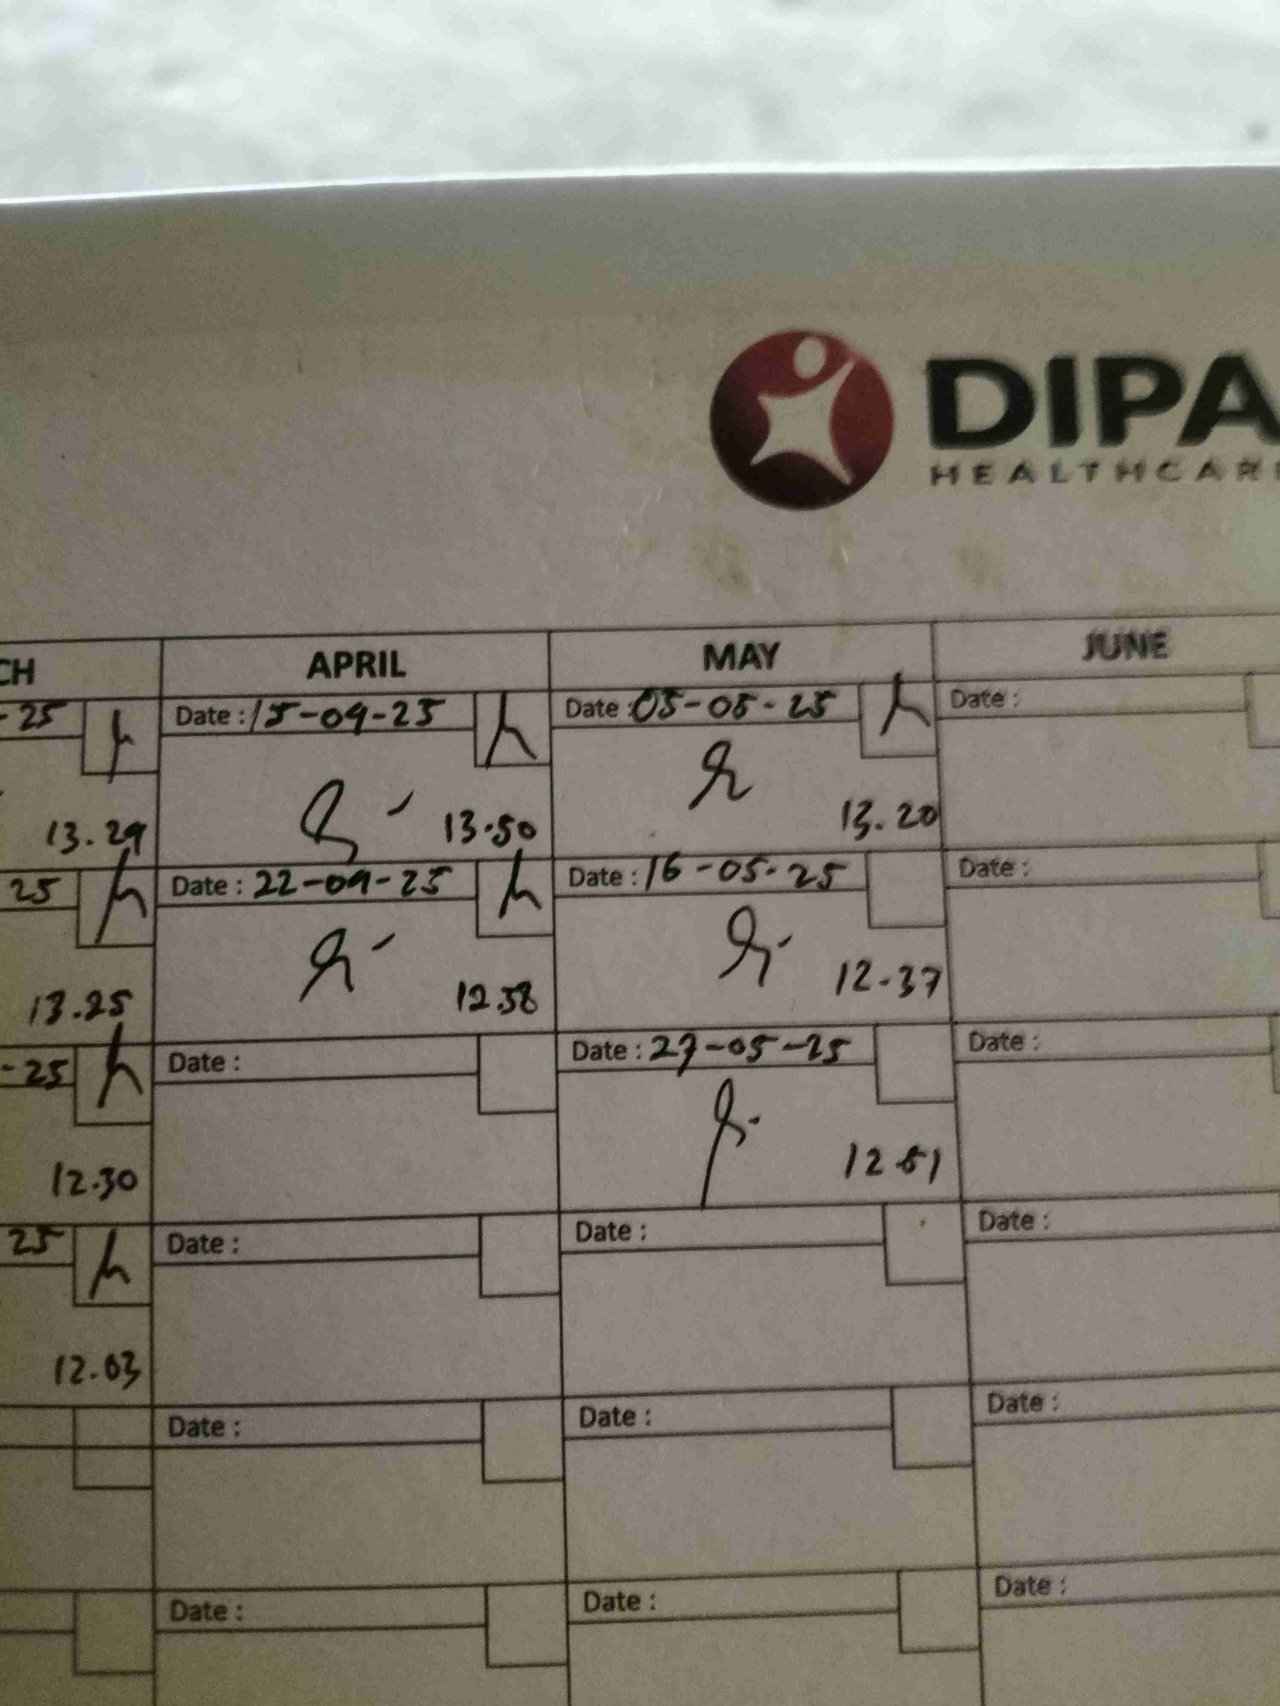 DIPA
HEALTHCARE
CH APRIL MAY JUNE
-25 Date : 15-04-25 Date : 05-05-25 Date :
13.29 13.50 13.20
25 Date : 22-04-25 Date : 16-05-25 Date :
13.25 12.58 12.37
-25 Date : Date : 27-05-25 Date :
12.30 12 51
25 Date : Date : Date :
12.03
Date : Date : Date :
Date : Date : Date :